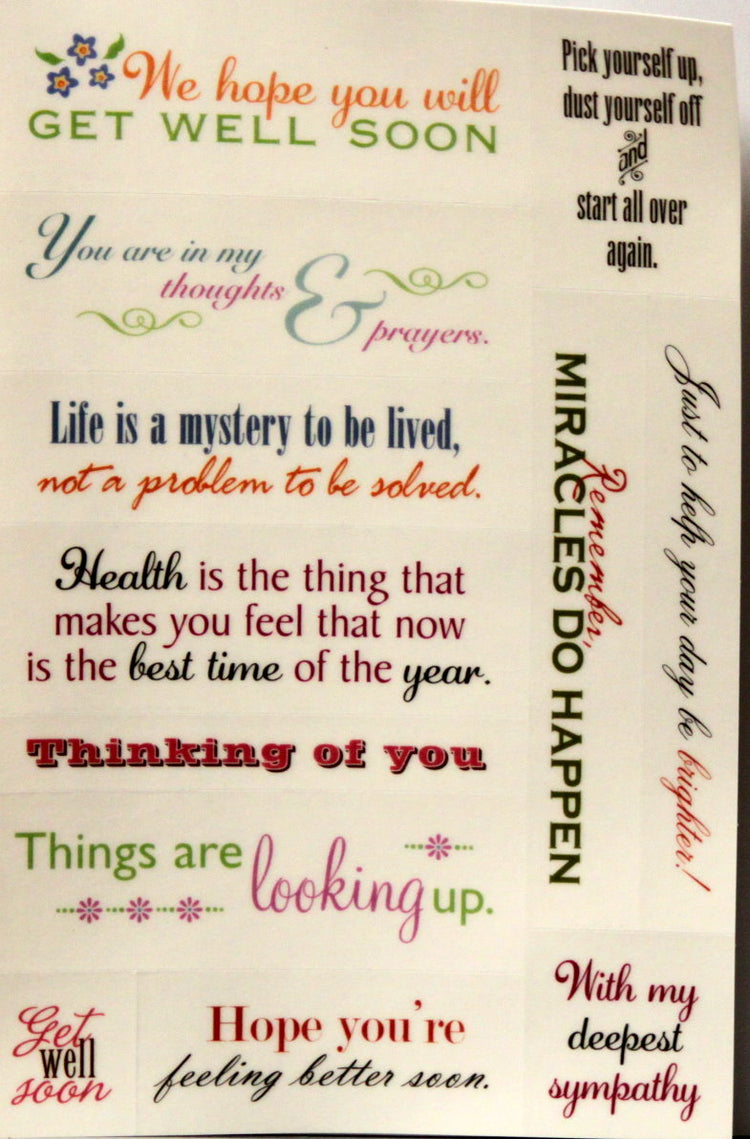 We hope you will
GET WELL SOON
You are in my
thoughts &
prayers.
Life is a mystery to be lived,
not a problem to be solved.
Health is the thing that
makes you feel that now
is the best time of the year.
Thinking of you
Things are looking up.
Get
well
soon
Hope you're
feeling better soon.
Pick yourself up,
dust yourself off
and
start all over
again.
Remember,
MIRACLES DO HAPPEN
Just to help your day be brighter!
With my
deepest
sympathy